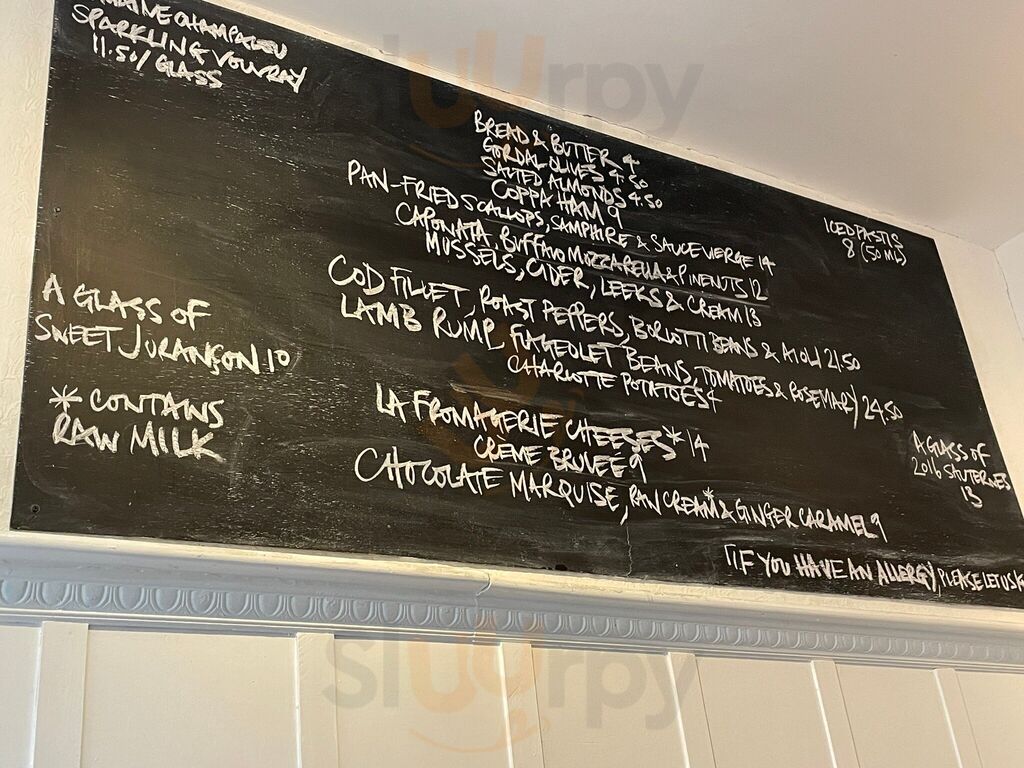 MAINE CHAMPALOU
SPARKLING VOUVRAY
11.50/GLASS
BREAD & BUTTER 4
GORDAL OLIVES 4.50
SALTED ALMONDS 4.50
COPPA HAM 9
PAN-FRIED SCALLOPS, SAMPHIRE & SAUCE VIERGE 14
CAPONATA, BUFFALO MOZZARELLA & PINENUTS 12
MUSSELS, CIDER, LEEKS & CREAM 13
COD FILLET, ROAST PEPPERS, BORLOTTI BEANS & AIOLI 21.50
LAMB RUMP, FLAGEOLET BEANS, TOMATOES & ROSEMARY 24.50
CHARLOTTE POTATOES 4
LA FROMAGERIE CHEESES* 14
CRÈME BRULEÉ 9
CHOCOLATE MARQUISE, RAW CREAM* & GINGER CARAMEL 9
ICED PASTIS
8 (50ML)
A GLASS OF
SWEET JURANÇON 10
* CONTAINS
RAW MILK
A GLASS OF
2016 SAUTERNES
13
IF YOU HAVE AN ALLERGY, PLEASE LET US K
sluurpy
sluurpy